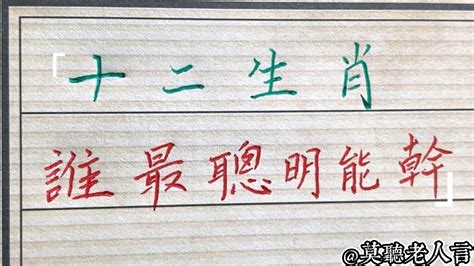 「十二生肖
誰最聰明能幹」
@莫聽老人言